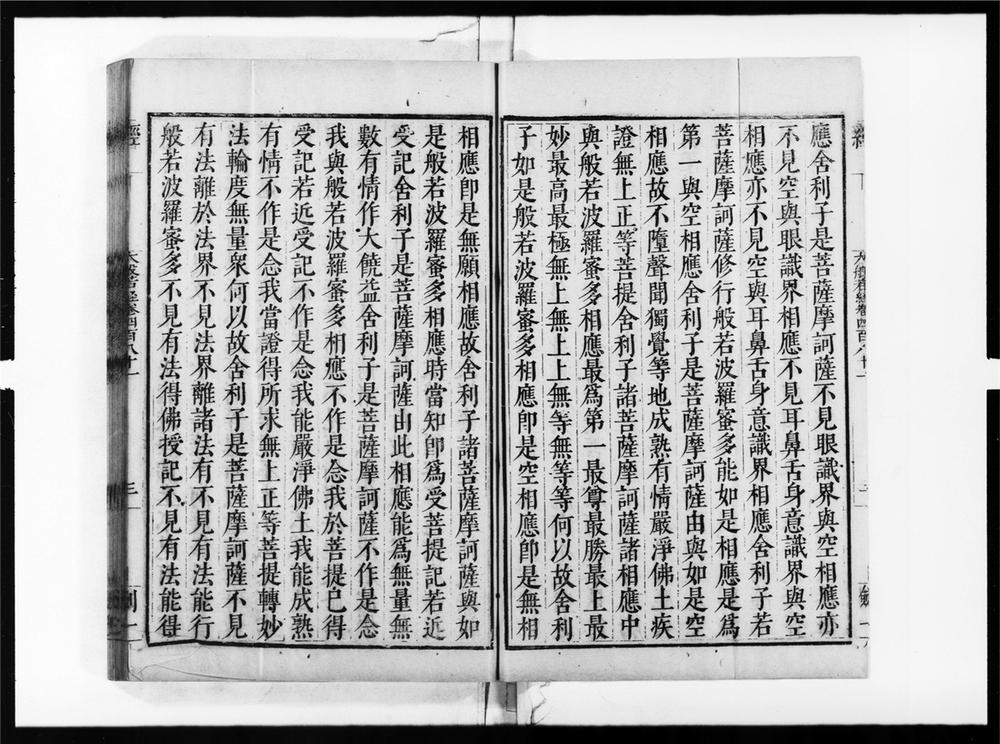 應舍利子是菩薩摩訶薩不見眼識界與空相應亦
不見空與眼識界相應不見耳鼻舌身意識界與空
相應亦不見空與耳鼻舌身意識界相應舍利子若
菩薩摩訶薩修行般若波羅蜜多能如是相應是爲
第一與空相應舍利子是菩薩摩訶薩由與如是空
相應故不墮聲聞獨覺等地成熟有情嚴淨佛土疾
證無上正等菩提舍利子諸菩薩摩訶薩諸相應中
與般若波羅蜜多相應最爲第一最尊最勝最上最
妙最高最極無上無上上無等無等等何以故舍利
子如是般若波羅蜜多相應卽是空相應卽是無相
相應卽是無願相應故舍利子諸菩薩摩訶薩與如
是般若波羅蜜多相應時當知卽爲受菩提記若近
受記舍利子是菩薩摩訶薩由此相應能爲無量無
數有情作大饒益舍利子是菩薩摩訶薩不作是念
我與般若波羅蜜多相應不作是念我於菩提已得
受記若近受記不作是念我能嚴淨佛土我能成熟
有情不作是念我當證得所求無上正等菩提轉妙
法輪度無量衆何以故舍利子是菩薩摩訶薩不見
有法離於法界不見法界離諸法有不見有法能行
般若波羅蜜多不見有法得佛授記不見有法能得